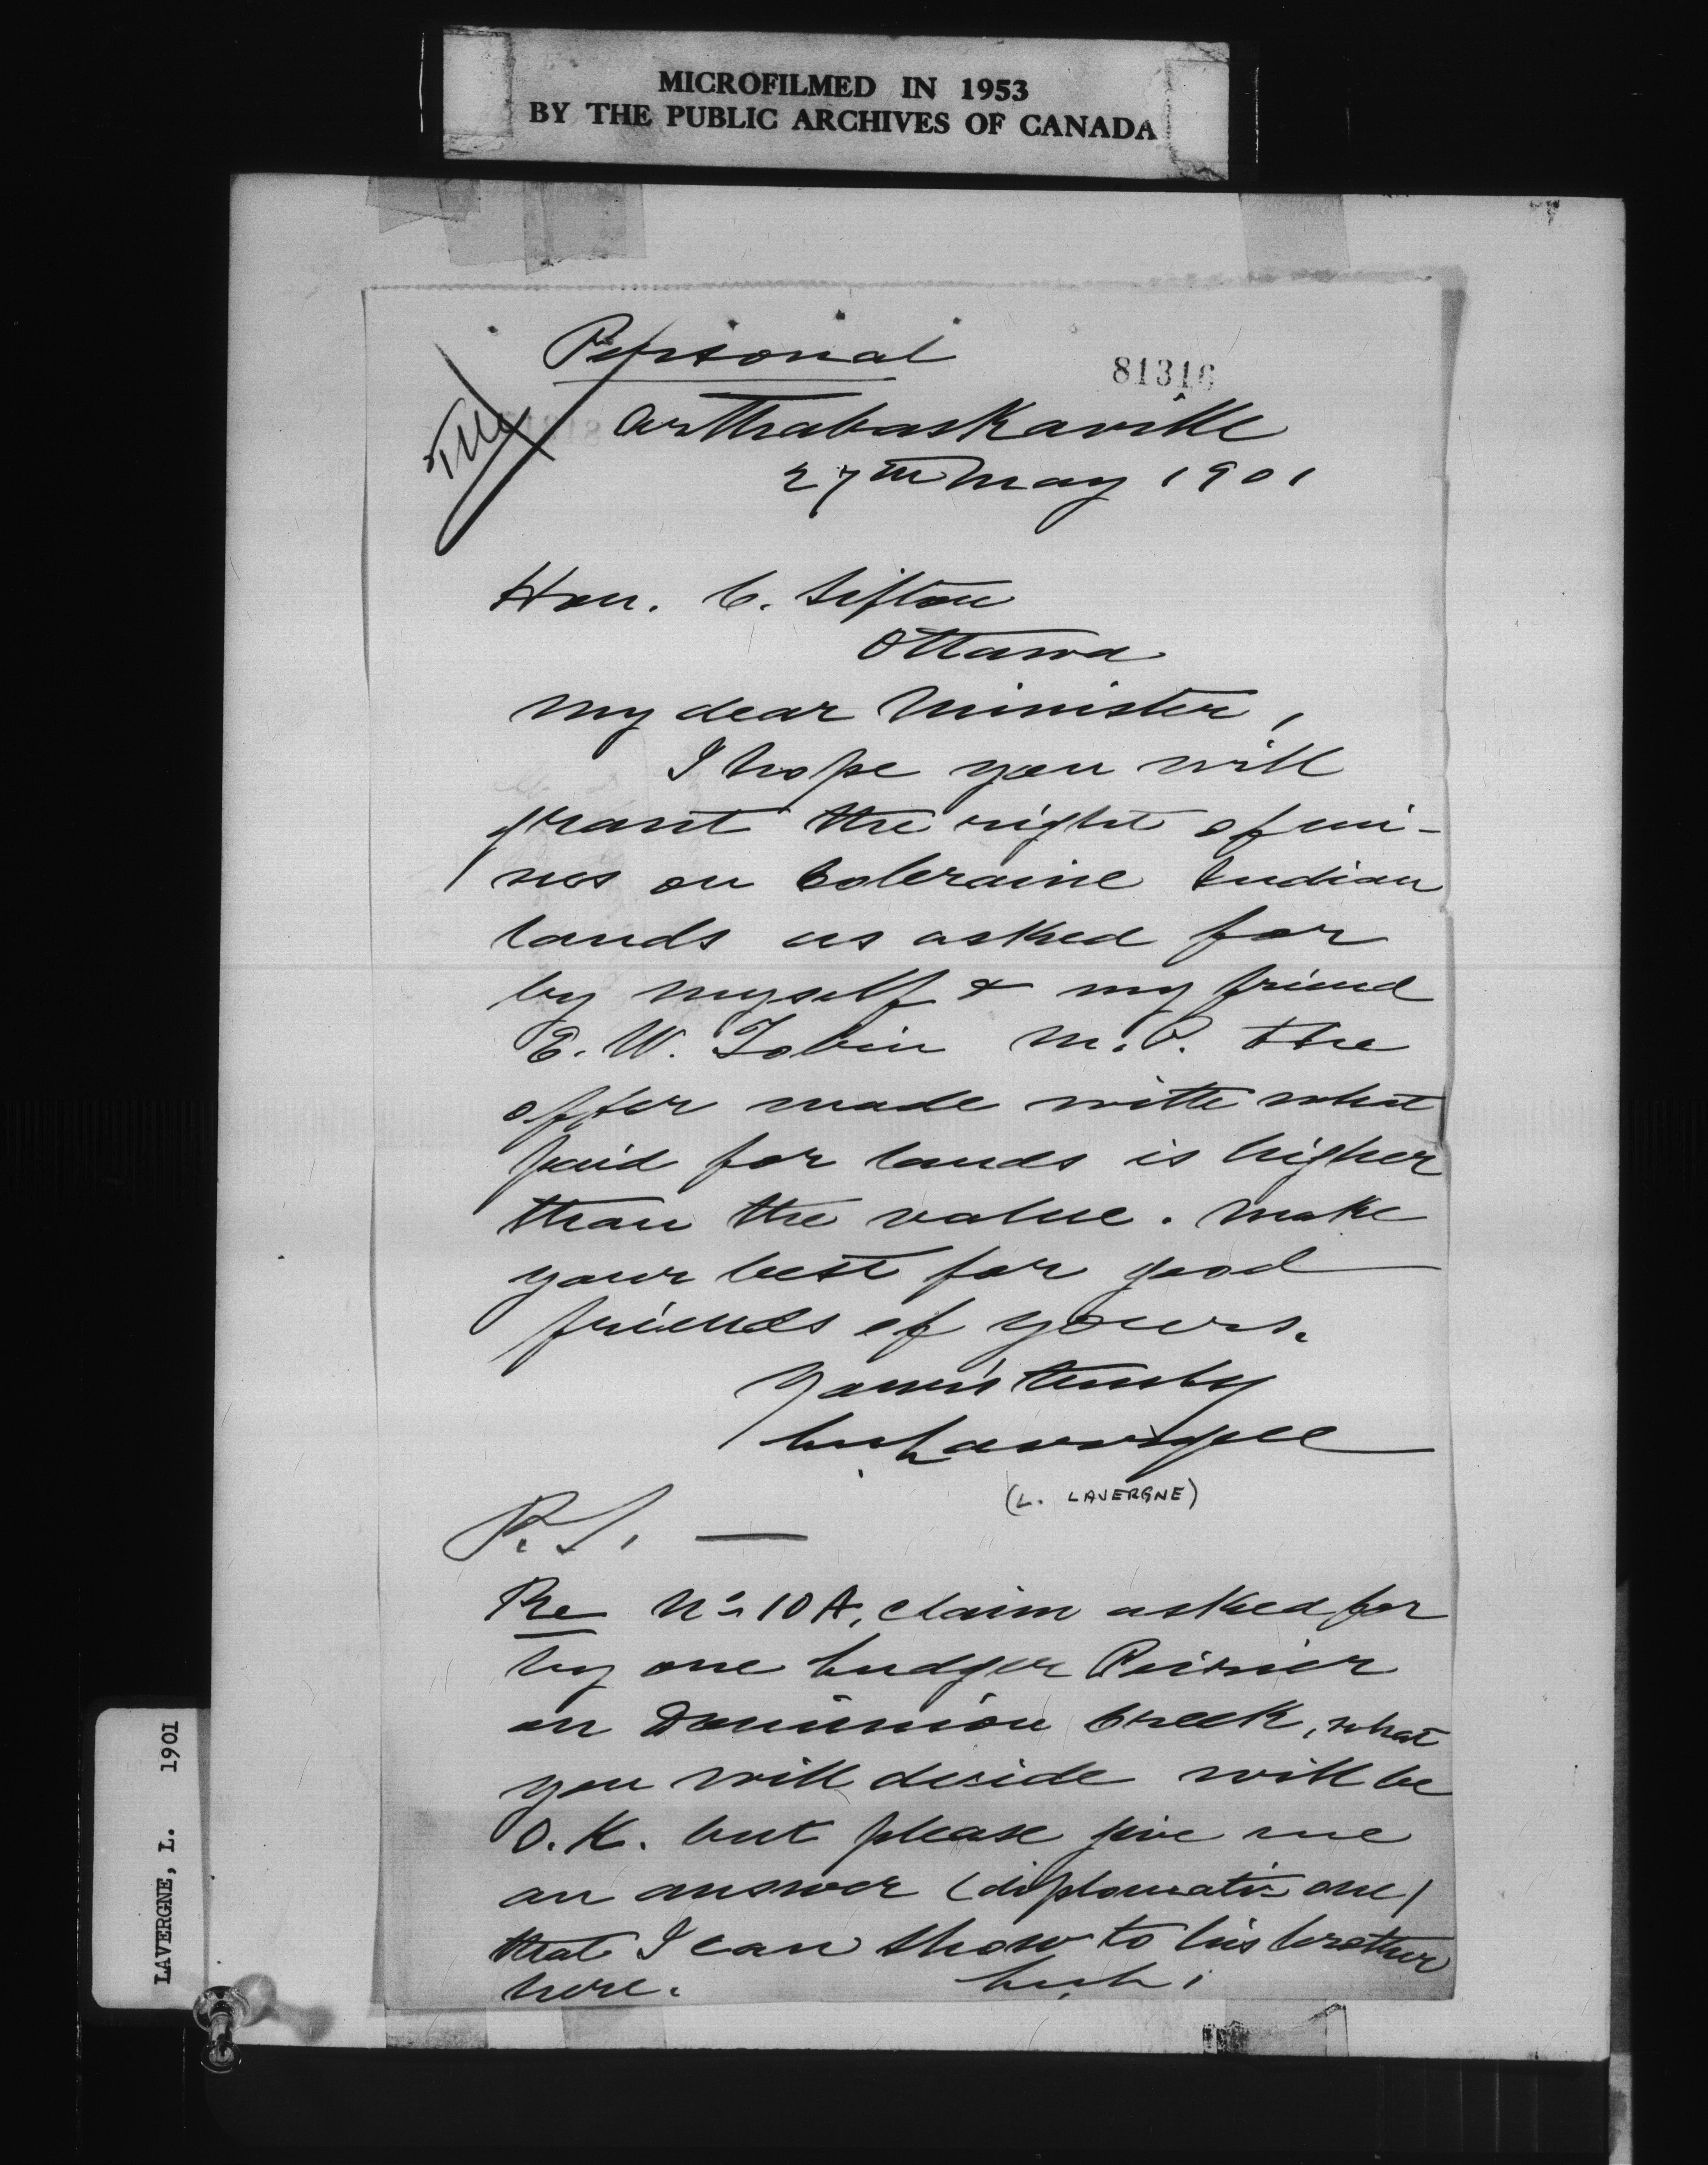 MICROFILMED IN 1953
BY THE PUBLIC ARCHIVES OF CANADA
Personal
81316
Arthabaskaville
27th May 1901
Hon. C. Sifton
Ottawa
My dear Minister,
I hope you will
grant the right of mi-
nes on Coleraine Indian
lands as asked for
by myself & my friend
E. W. Tobin M.P. The
offer made with what
paid for lands is higher
than the value. Make
your best for good
friends of yours.
Yours truly
Ls Lavergne
(L. LAVERGNE)
P.S. —
Re No 10A, claim asked for
by one Ludger Poirier
on Dominion Creek, what
you will decide will be
O.K. but please give me
an answer (diplomatic one)
that I can show to his brother
here.
LAVERGNE, L. 1901